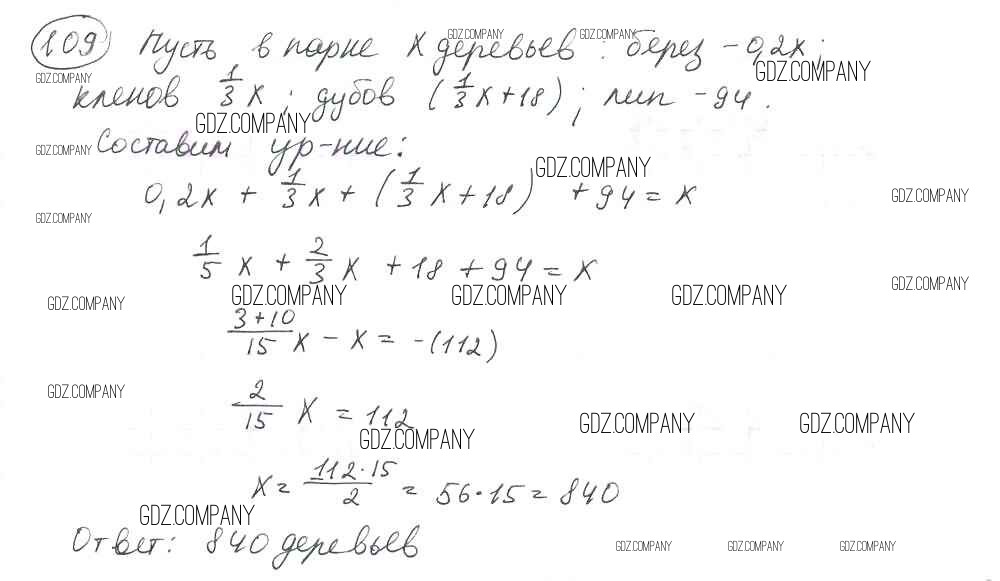 109 Пусть в парке x деревьев : берез - 0,2x ;
кленов 1/3 x ; дубов (1/3 x + 18) ; лип - 94 .
Составим ур-ние:
0,2x + 1/3 x + (1/3 x + 18) + 94 = x
1/5 x + 2/3 x + 18 + 94 = x
(3+10)/15 x - x = -(112)
2/15 x = 112
x = (112·15)/2 = 56·15 = 840
Ответ: 840 деревьев
GDZ.COMPANY GDZ.COMPANY
GDZ.COMPANY GDZ.COMPANY
GDZ.COMPANY
GDZ.COMPANY GDZ.COMPANY
GDZ.COMPANY GDZ.COMPANY
GDZ.COMPANY
GDZ.COMPANY GDZ.COMPANY GDZ.COMPANY GDZ.COMPANY
GDZ.COMPANY
GDZ.COMPANY GDZ.COMPANY GDZ.COMPANY
GDZ.COMPANY
GDZ.COMPANY GDZ.COMPANY GDZ.COMPANY